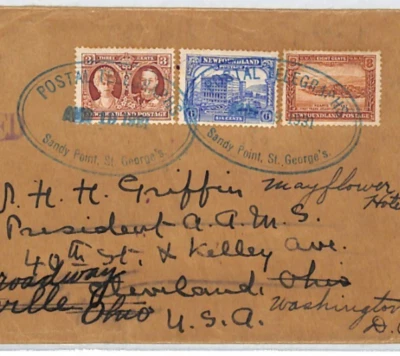 THREE CENTS
3 3
NEWFOUNDLAND POSTAGE
NEWFOUNDLAND
6 6
SIX CENTS
EIGHT CENTS
8 8
NEWFOUNDLAND POSTAGE
POSTAL TELEGRAPHS
1931
Sandy Point, St. George's.
POSTAL TELEGRAPHS
1931
Sandy Point, St. George's.
J. H. H. Griffin
Mayflower
Hote
President A.A.M.S.
40th St. & Kelley Ave.
roadway
Cleveland, Ohio
ville Ohio
U.S.A.
Washington
D.C